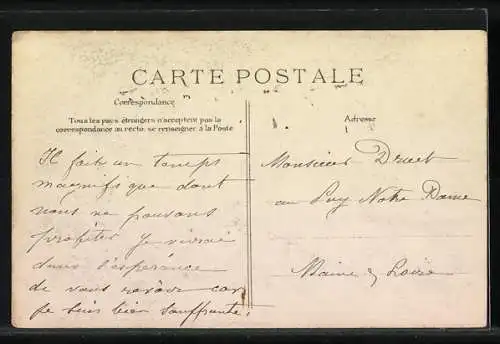 CARTE POSTALE
Correspondance
Tous les pays étrangers n'acceptent pas la
correspondance au recto, se renseigner à la Poste
Adresse
Il fait un temps
magnifique dont
nous ne pouvons
profiter je vivrai
dans l'espérance
de vous revoir car
je suis bien souffrante.
Monsieur Druet
au Puy Notre Dame
Maine & Loire